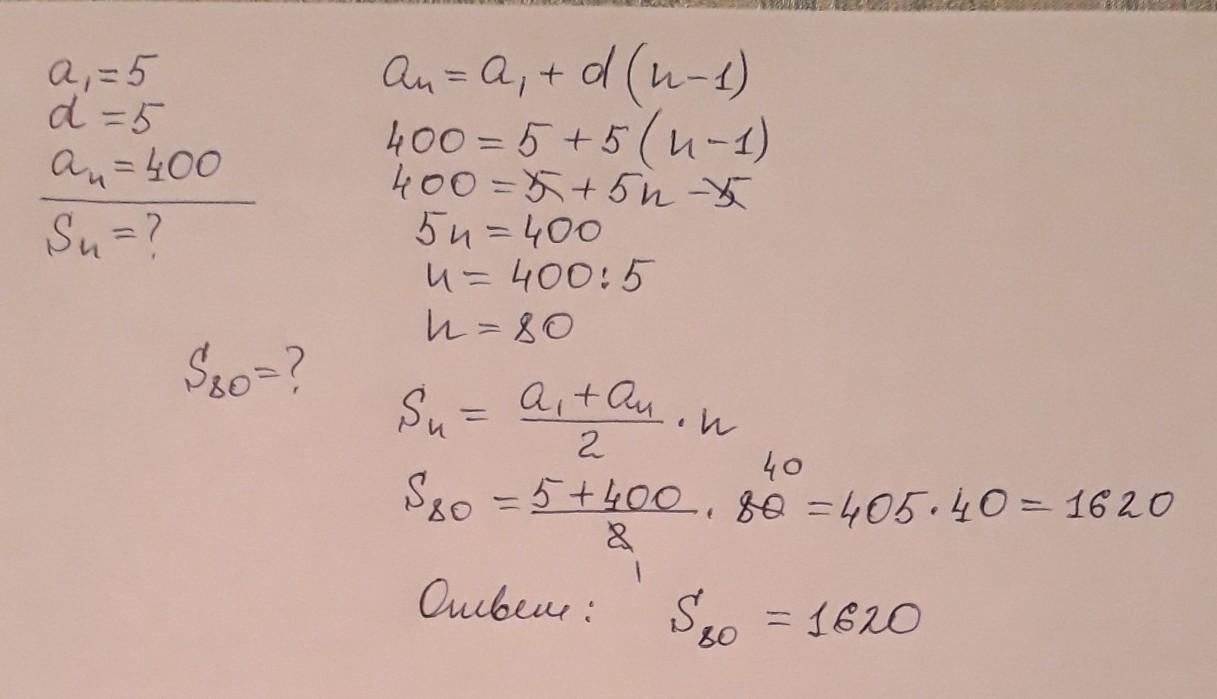 a₁ = 5
d = 5
aₙ = 400
Sₙ = ?
aₙ = a₁ + d (n - 1)
400 = 5 + 5 (n - 1)
400 = 5 + 5n - 5
5n = 400
n = 400 : 5
n = 80
S₈₀ = ?
Sₙ = (a₁ + aₙ)/2 · n
S₈₀ = (5 + 400)/2 · 80 = 405 · 40 = 1620
40
1
Ответ: S₈₀ = 1620